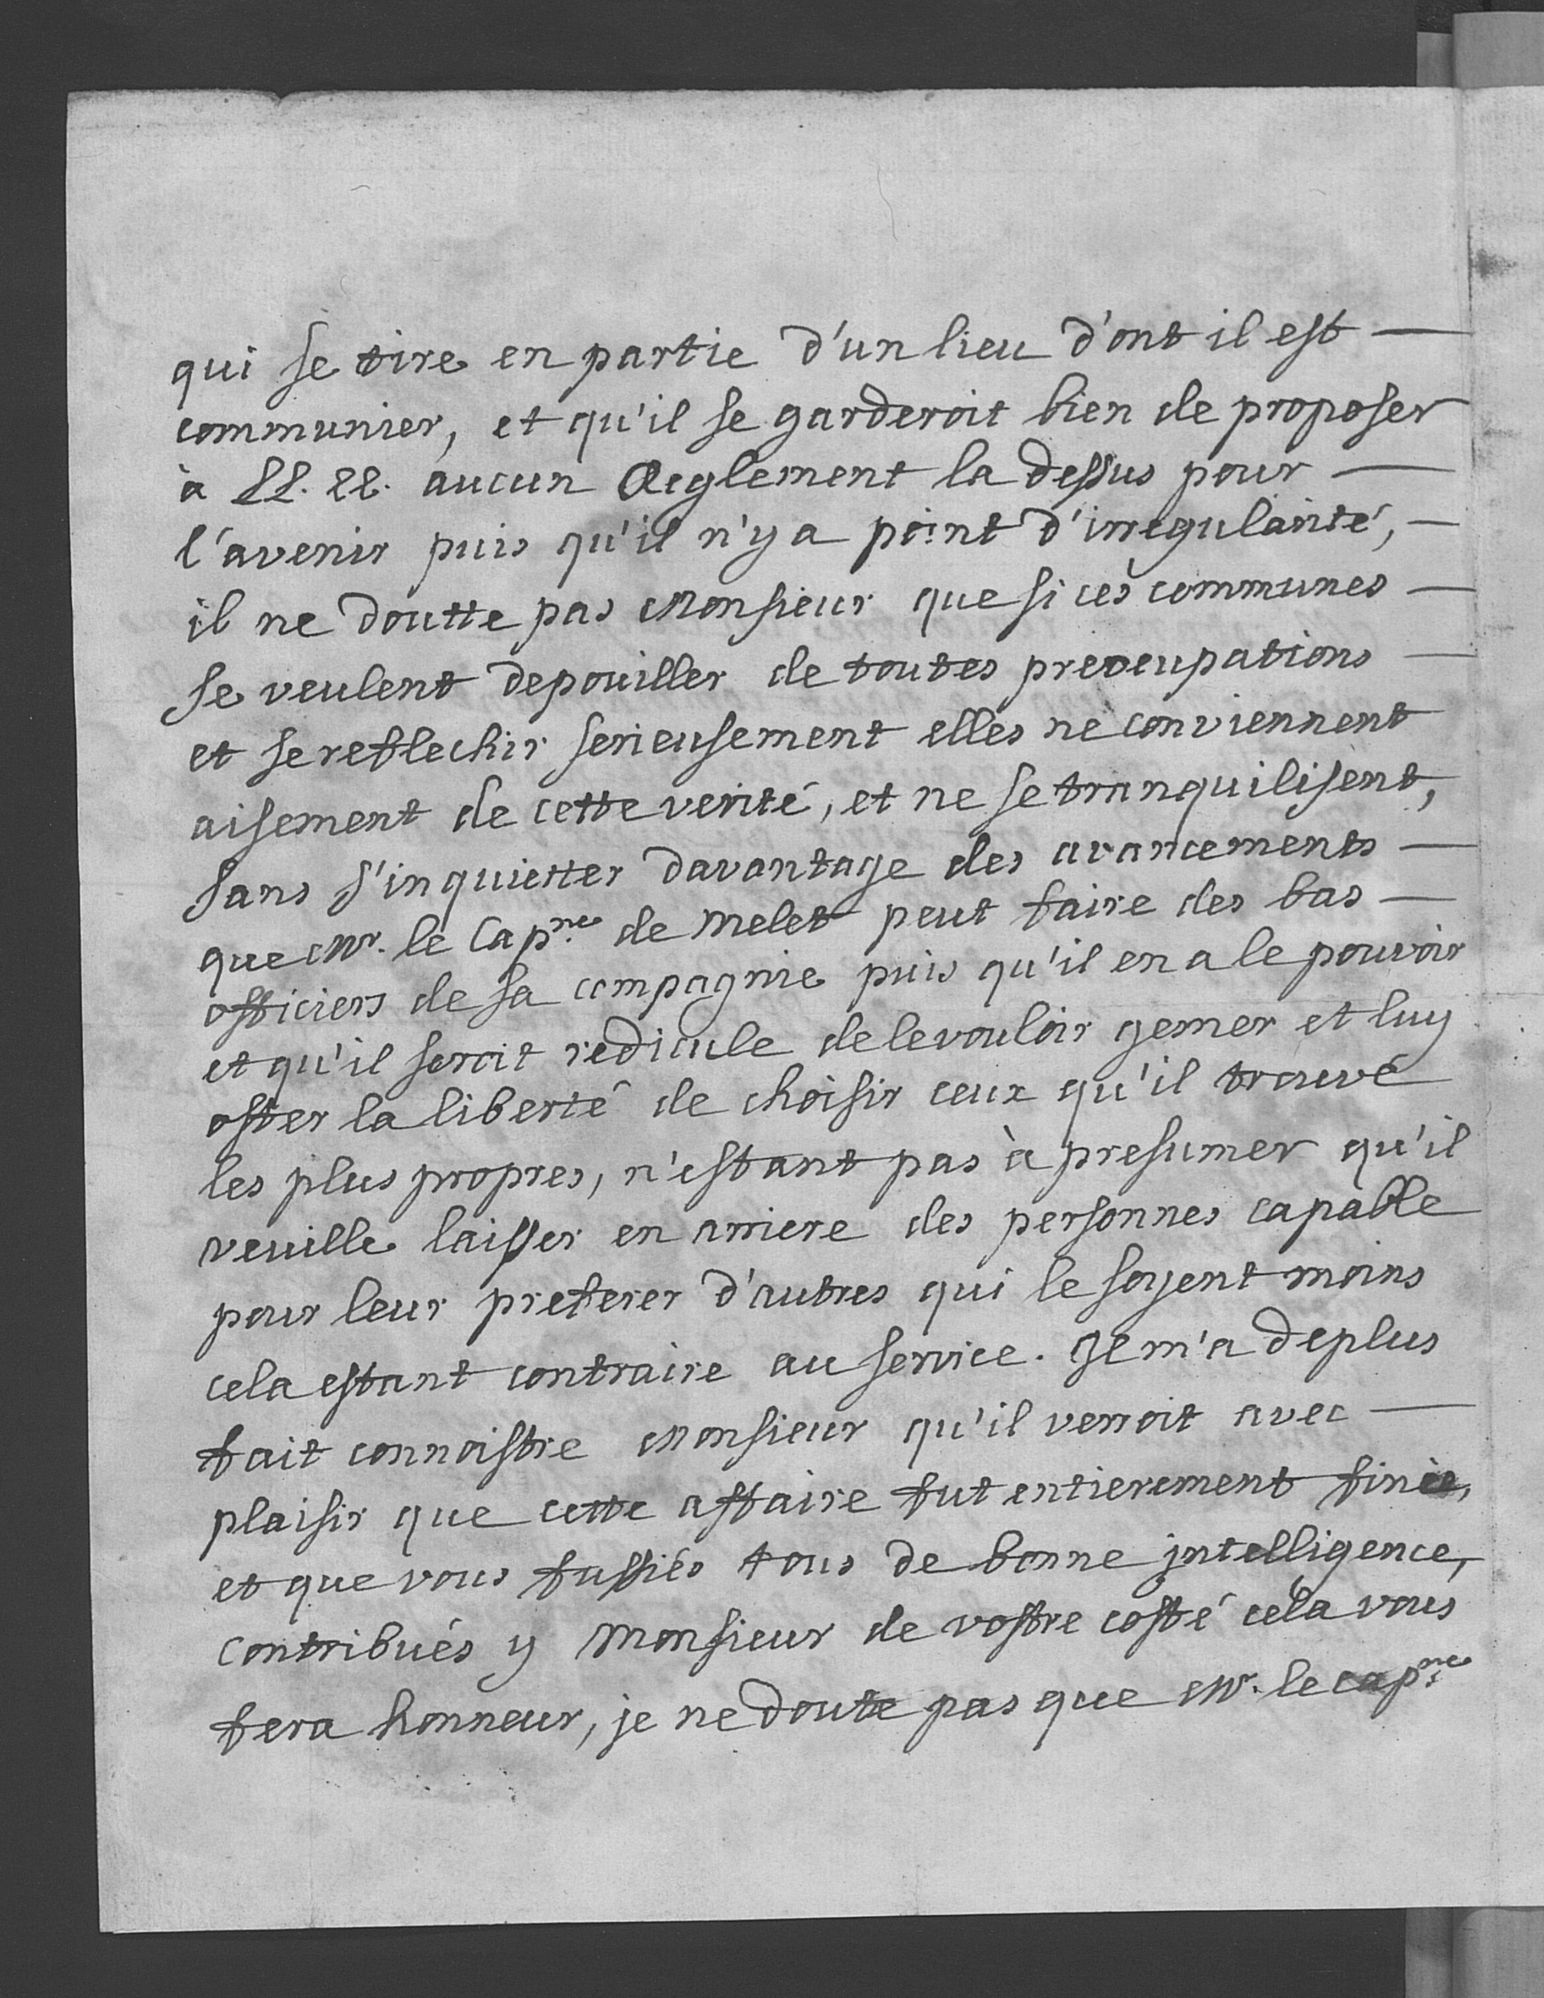 qui se tire en partie d'un lieu d'ont il est —
communier, et qu'il se garderoit bien de proposer
à LL. EE. aucun Reglement la dessus pour —
l'avenir puis qu'il n'y a point d'irregularité, —
il ne doutte pas Monsieur que si ces communes —
se veulent depouiller de toutes preocupations —
et se reflechir serieusement elles ne conviennent
aisement de cette verité, et ne se tranquilisent,
sans s'inquietter davantage des avancements —
que Mr. le Capne. de Melet peut faire des bas —
officiers de sa compagnie puis qu'il en a le pouvoir
et qu'il seroit redicule de le vouloir gemer et luy
oster la liberté de choisir ceux qu'il trouve
les plus propres, n'estant pas à presumer qu'il
veuille laisser en arriere des personnes capable
pour leur preferer d'autres qui le soyent moins
cela estant contraire au service. Il m'a deplus
fait connoistre Monsieur qu'il verroit avec —
plaisir que cette affaire fut entierement finie,
et que vous fussiés tous de bonne intelligence,
contribués y Monsieur de vostre costé cela vous
fera honneur, je ne doute pas que Mr. le capne.